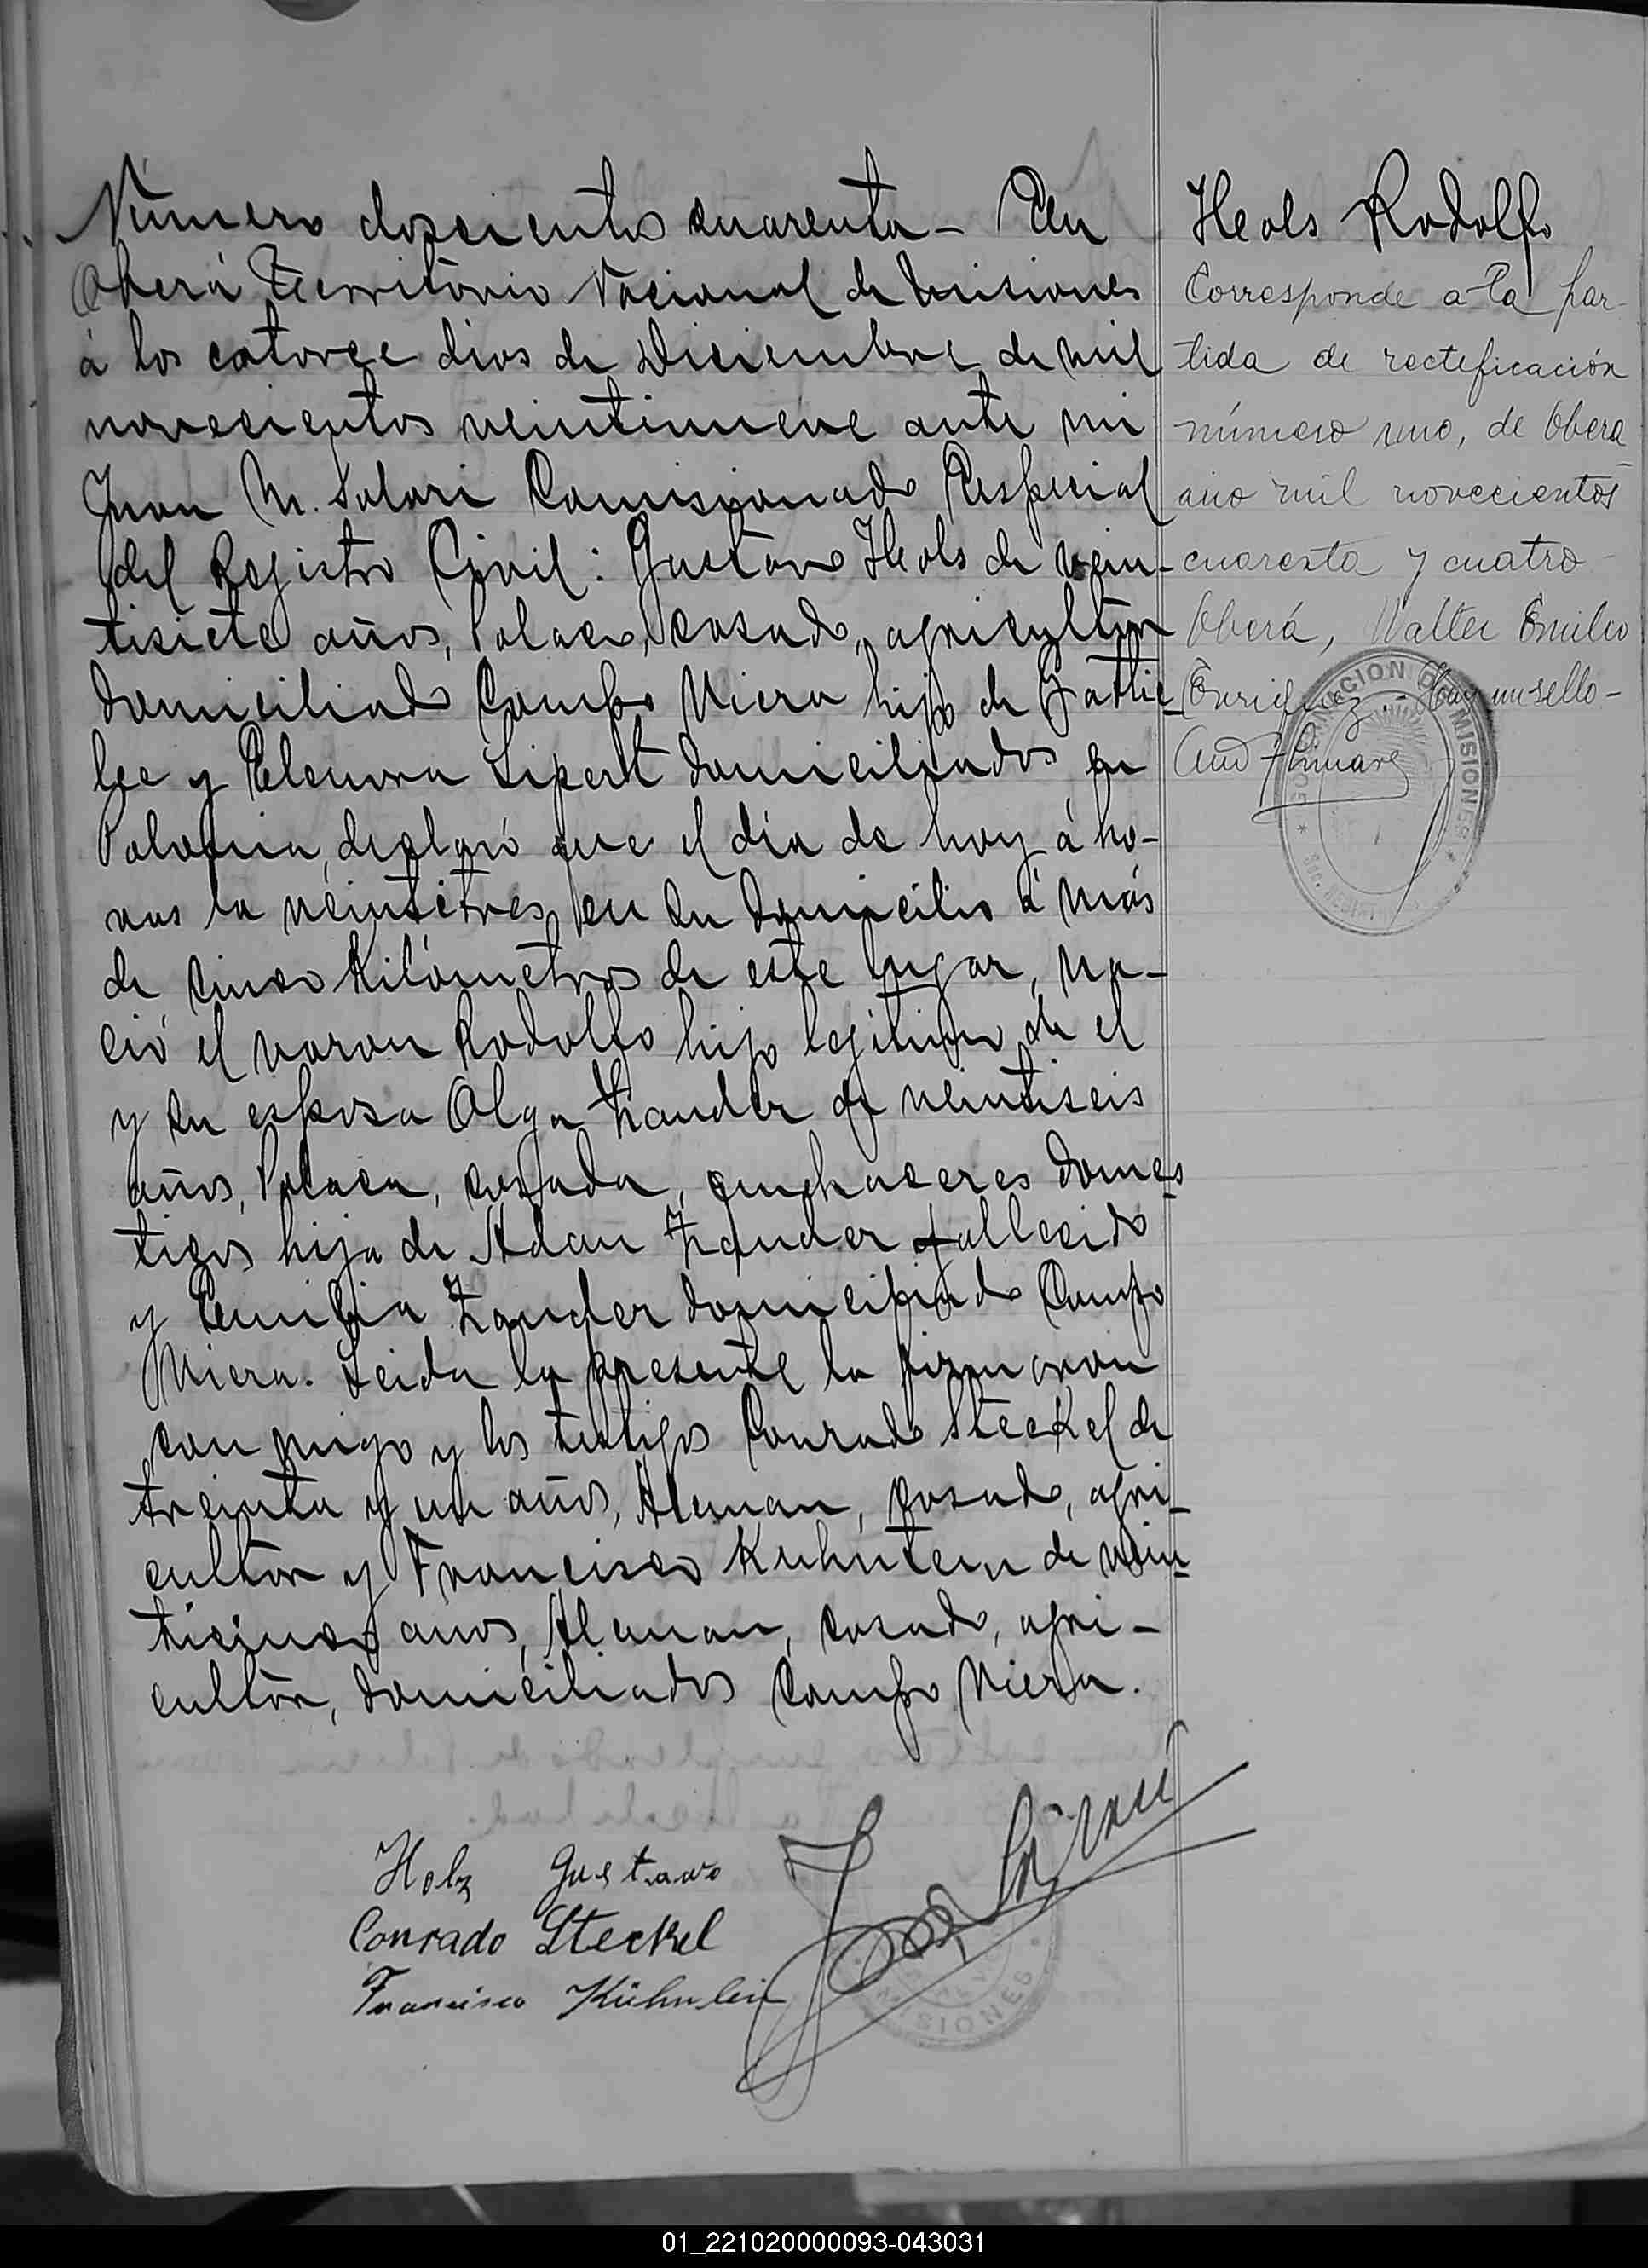 Número doscientos cuarenta - En
Oberá Territorio Nacional de Misiones
á los catorce dias de Diciembre de mil
novecientos veintinueve ante mi
Juan M. Solari Comisionado Especial
del Registro Civil: Gustavo Heols de vein-
tisiete años, Polaco, casado, agricultor
domiciliado Campo Viera hijo de Gottlie-
lee y Eleonora Lipert domiciliados en
Polonia, declaró que el día de hoy á ho-
ras la veintetres, en su domicilio á más
de cinco Kilómetros de este lugar, na-
ció el varon Rodolfo hijo legitimo de el
y su esposa Olga Zander de veintiseis
años, Polaca, casada, quehaceres domes-
ticos hija de Adan Zander fallecido
y Emilia Zander domiciliado Campo
Viera. Leida la presente la firmaron
con migo y los testigos Conrado Steckel de
treinta y un años, Aleman, casado, agri-
cultor y Francisco Kuhnlein de vein-
ticinco anos, Aleman, casado, agri-
cultor, domiciliados Campo Viera.
Holz Gustavo
Conrado Steckel
Francisco Kühnlein
MISIONES
Heols Rodolfo
Corresponde a la par-
tida de rectificación
número uno, de Oberá
año mil novecientos
cuarenta y cuatro
Oberá, Walter Emilio
Enriquez. Hay un sello-
GOBERNACION DE MISIONES
01_221020000093-043031